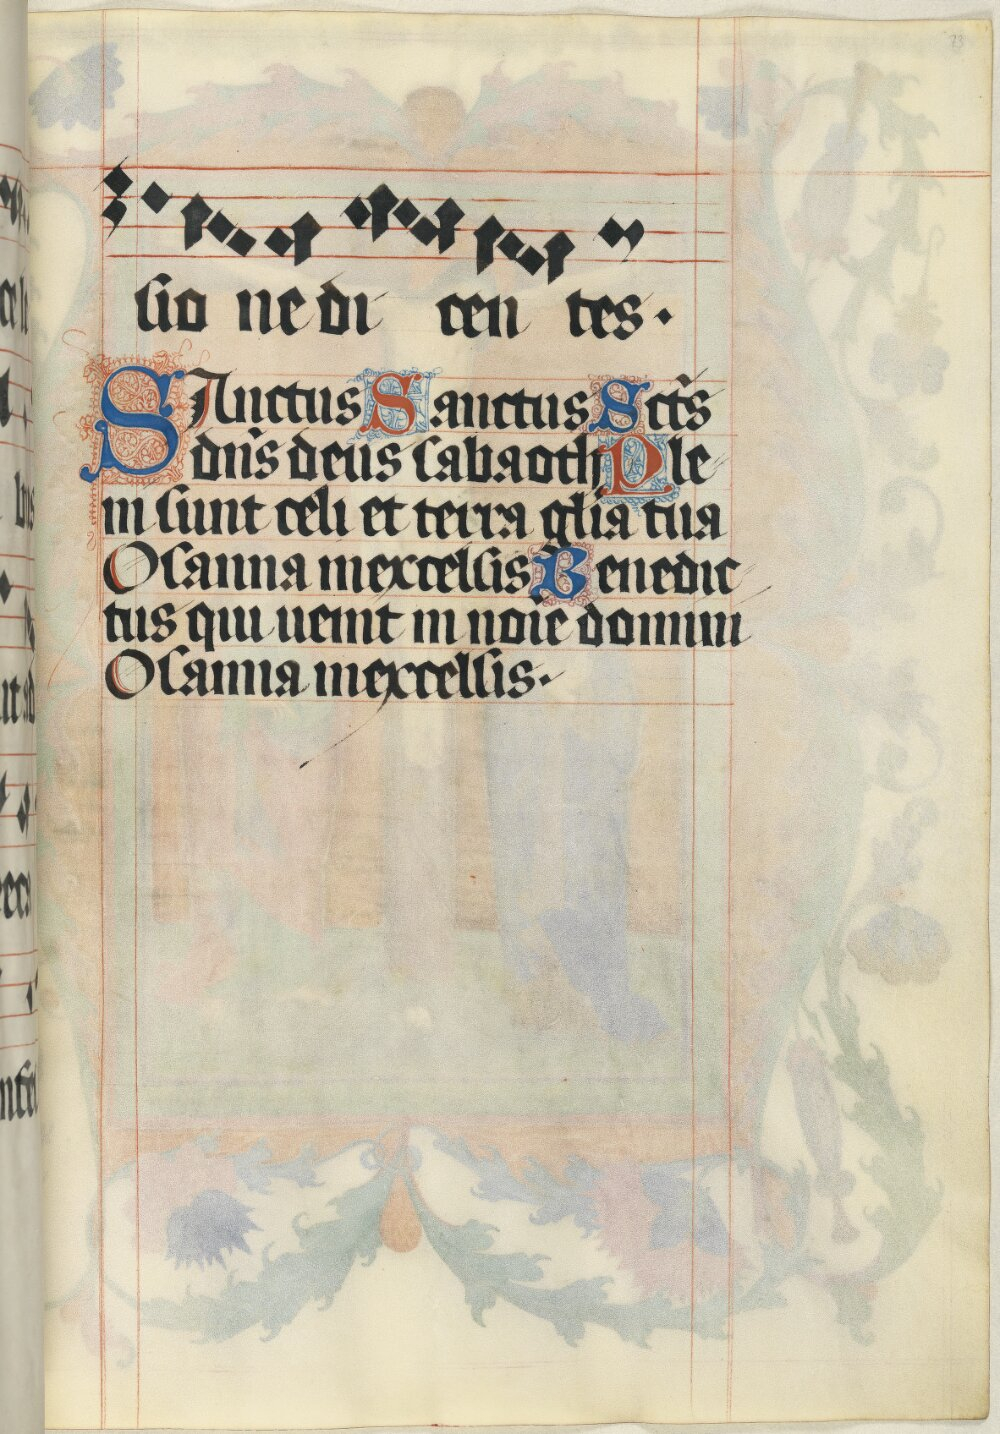 73
sio ne di cen tes.
SAnctus Sanctus Sct̄s
dn̄s deus sabaoth Ple
ni sunt celi et terra gl̄ia tua
Osanna in excelsis Benedic
tus qui uenit in noīe domini
Osanna in excelsis.